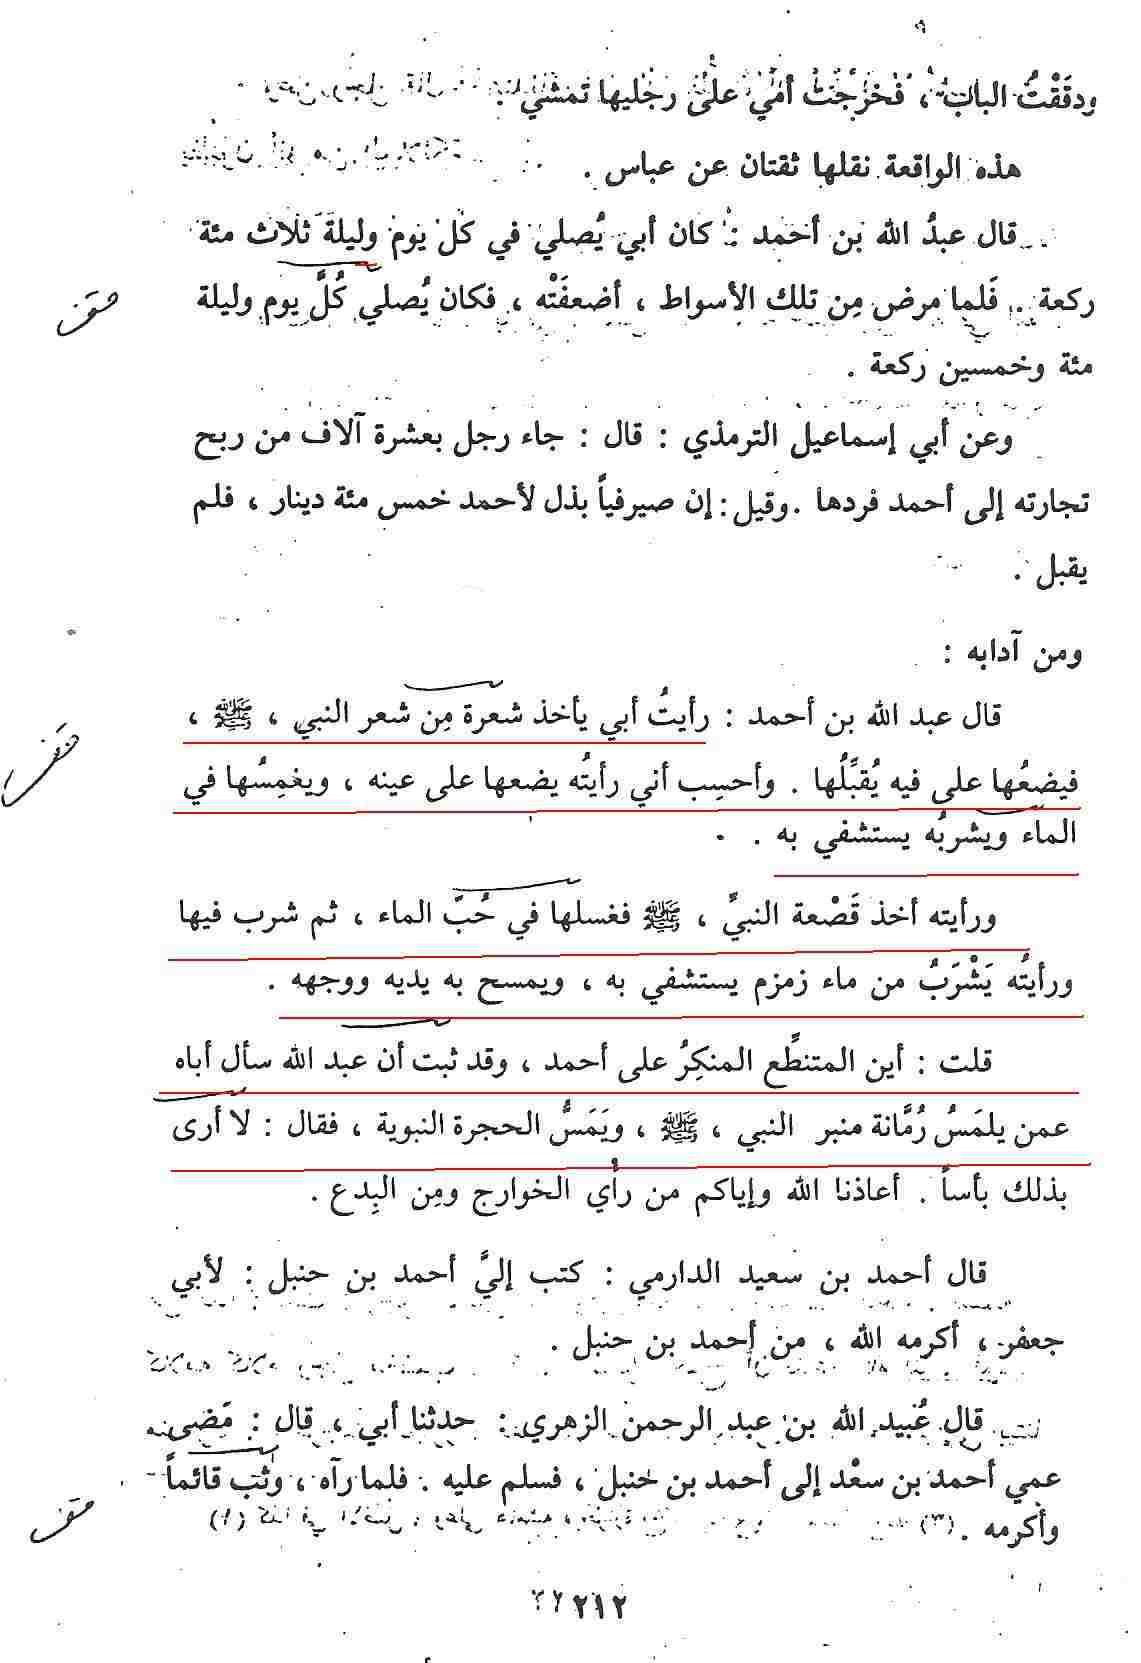 ودقَقْتُ الباب ، فخرجَتْ أمي على رجليها تمشي .
هذه الواقعة نقلها ثقتان عن عباس .
قال عبدُ الله بن أحمد : كان أبي يُصلي في كل يوم وليلة ثلاث مئة
ركعة . فَلما مرض مِن تلك الأسواط ، أضعفَتْه ، فكان يُصلي كُلَّ يوم وليلة
مئة وخمسين ركعة .
وعن أبي إسماعيل الترمذي : قال : جاء رجل بعشرة آلاف من ربح
تجارته إلى أحمد فردها . وقيل : إن صيرفياً بذل لأحمد خمس مئة دينار ، فلم
يقبل .
ومن آدابه :
قال عبد الله بن أحمد : رأيتُ أبي يأخذ شعرة مِن شعر النبي ، ﷺ ،
فيضعُها على فيه يُقبِّلُها . وأحسِب أني رأيتُه يضعها على عينه ، ويغمِسُها في
الماء ويشربُه يستشفي به .
ورأيته أخذ قَصْعة النبيِّ ، ﷺ فغسلها في حُبِّ الماء ، ثم شرب فيها
ورأيتُه يَشْرَبُ من ماء زمزم يستشفي به ، ويمسح به يديه ووجهه .
قلت : أين المتنطِّع المنكِرُ على أحمد ، وقد ثبت أن عبد الله سأل أباه
عمن يلمَسُ رُمَّانة منبر النبي ، ﷺ ، ويَمَسُّ الحجرة النبوية ، فقال : لا أرى
بذلك بأساً . أعاذنا الله وإياكم من رأي الخوارج ومِن البِدع .
قال أحمد بن سعيد الدارمي : كتب إليَّ أحمد بن حنبل : لأبي
جعفر ، أكرمه الله ، من أحمد بن حنبل .
قال عُبيد الله بن عبد الرحمن الزهري : حدثنا أبي ، قال : مَضى
عمي أحمد بن سعْد إلى أحمد بن حنبل ، فسلم عليه . فلما رآه ، وثب قائماً
وأكرمه .
٢١٢